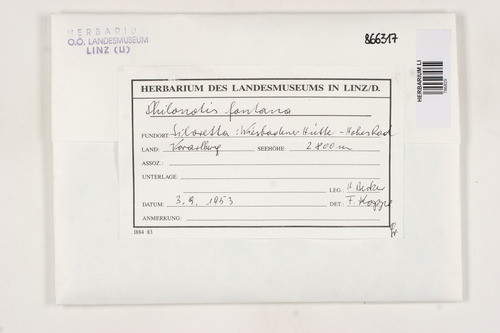 HERBARIUM
O.Ö. LANDESMUSEUM
LINZ (LI)
866317
HERBARIUM LI
HERBARIUM DES LANDESMUSEUMS IN LINZ/D.
Philonotis fontana
FUNDORT: Silvretta: Wiesbadener Hütte – Hohes Rad
LAND: Vorarlberg SEEHÖHE: 2800 m
ASSOZ.:
UNTERLAGE:
LEG.: H. Becker
DATUM: 3. 9. 1953 DET.: F. Koppe
ANMERKUNG:
1884 83